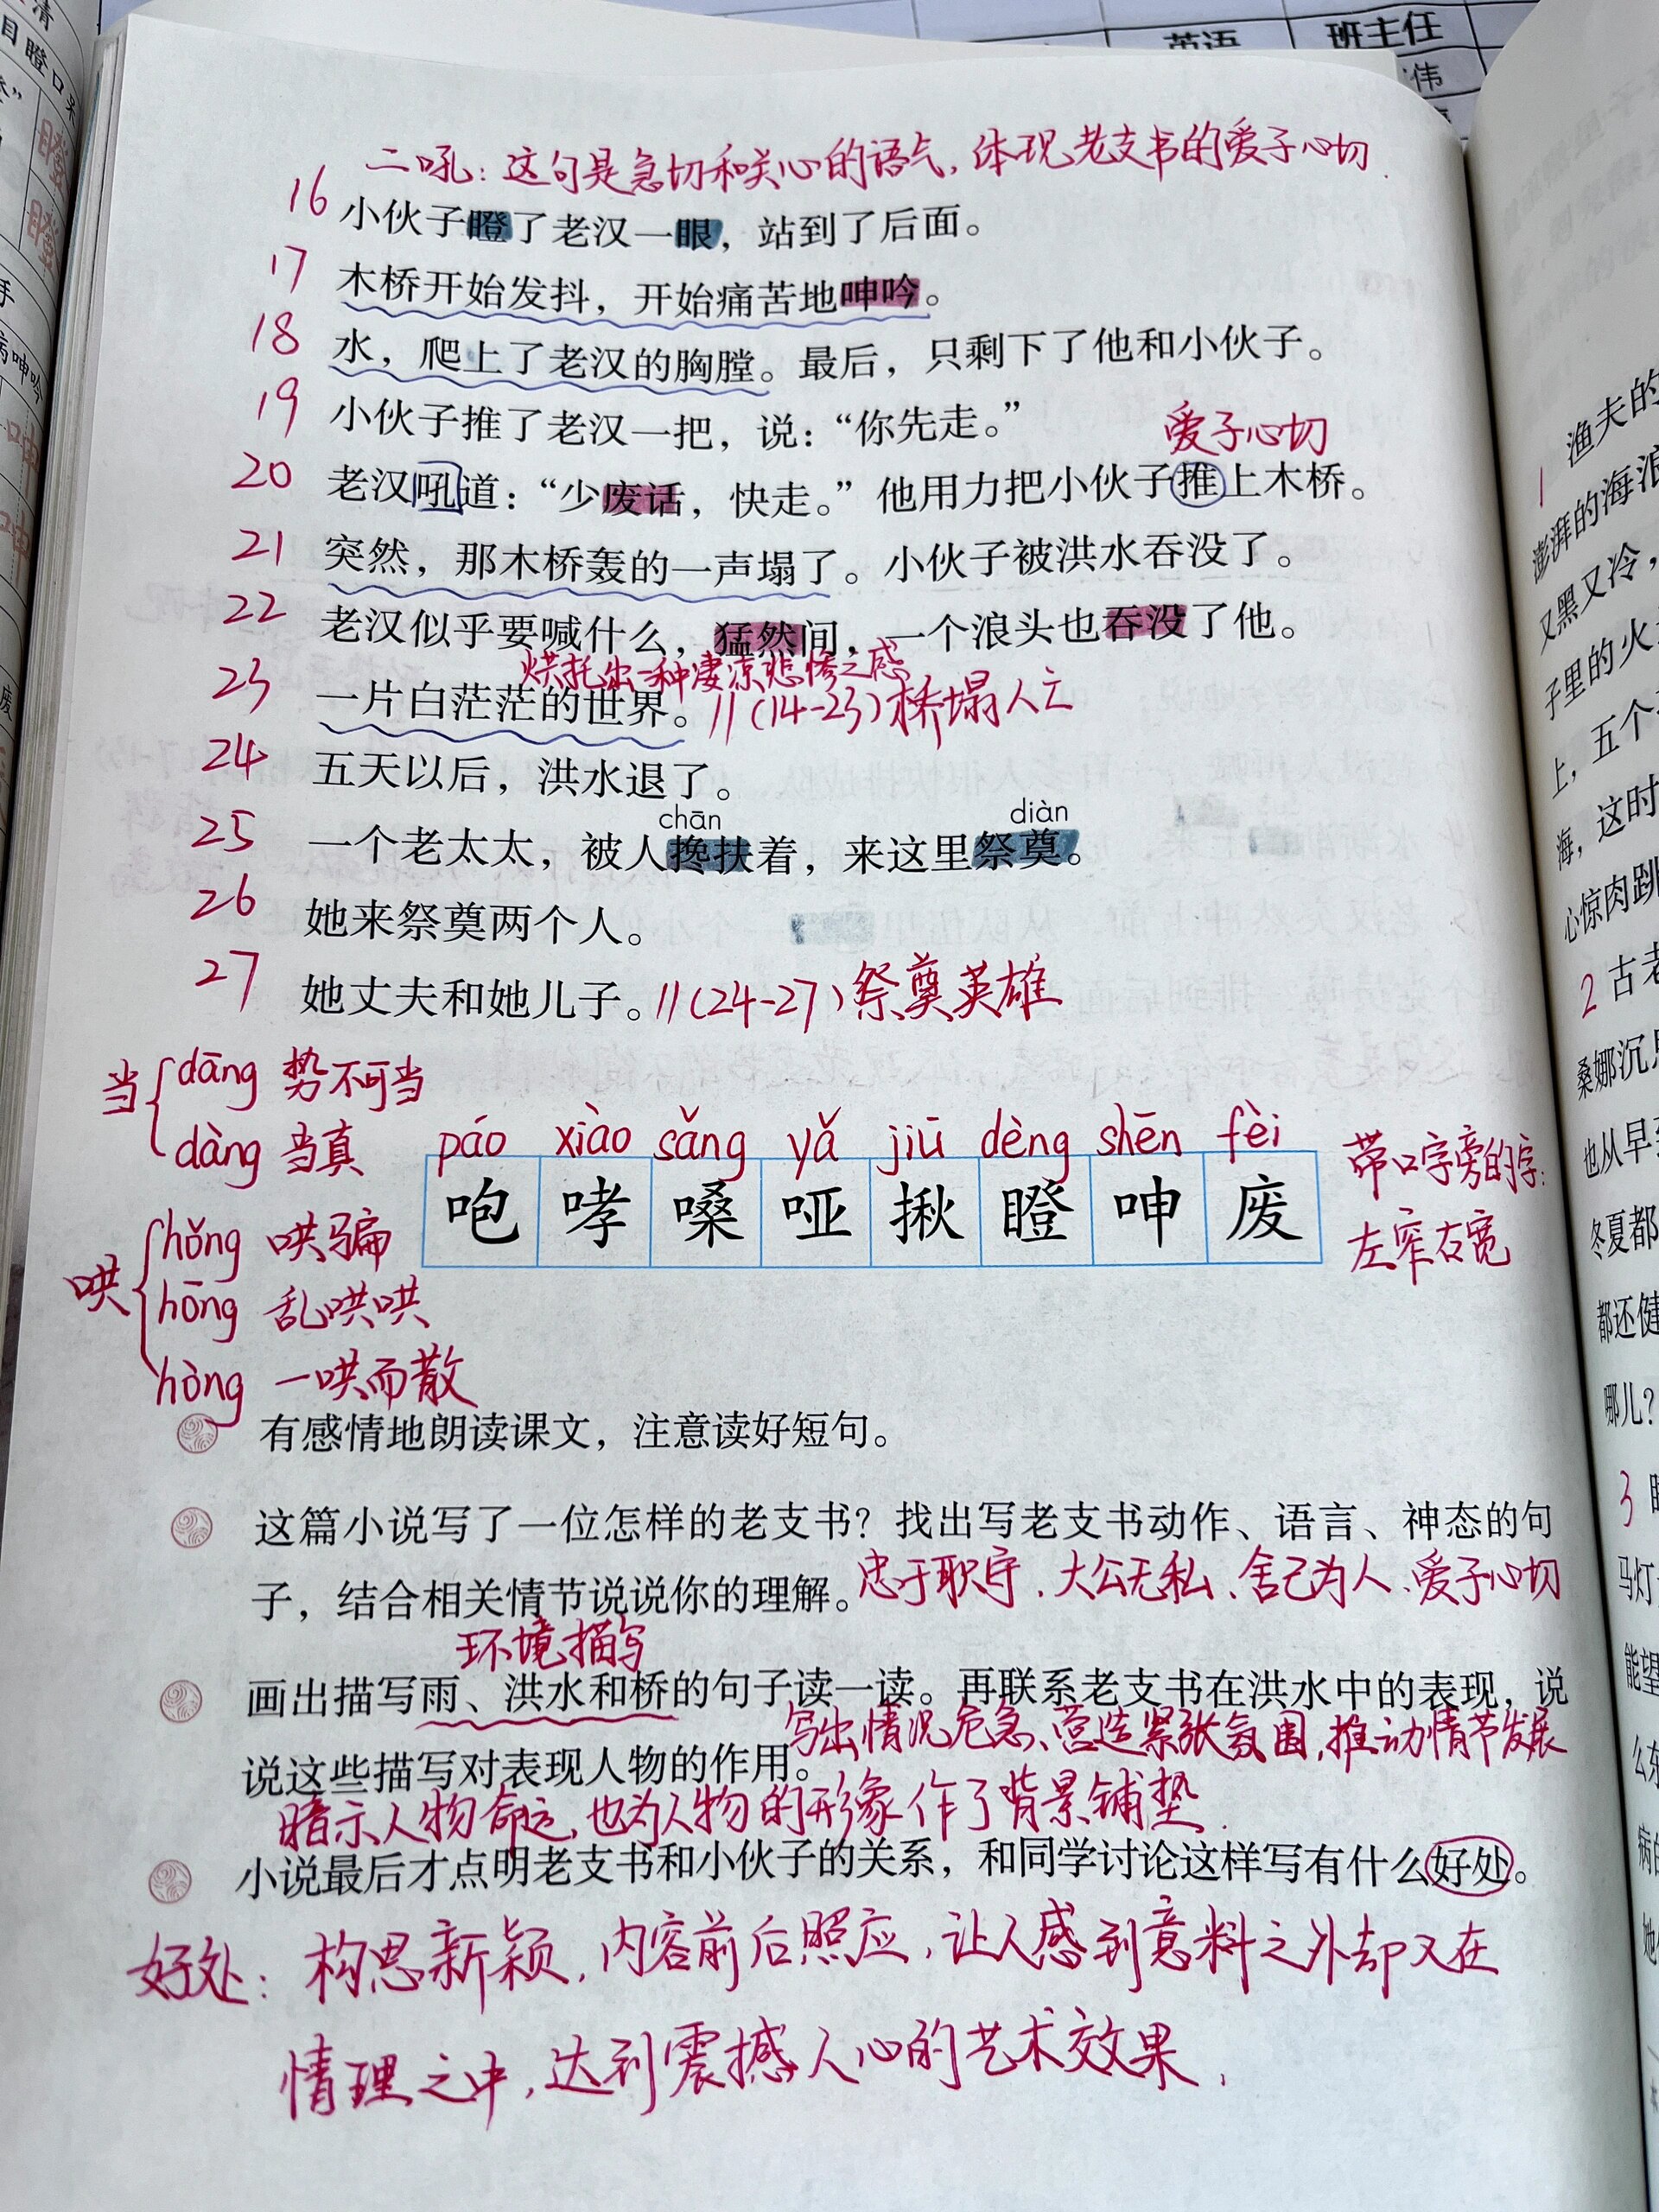 英语 班主任
伟
二吼：这句是急切和关心的语气，体现老支书的爱子心切.
16 小伙子瞪了老汉一眼，站到了后面。
17 木桥开始发抖，开始痛苦地呻吟。
18 水，爬上了老汉的胸膛。最后，只剩下了他和小伙子。
19 小伙子推了老汉一把，说：“你先走。”
爱子心切
20 老汉吼道：“少废话，快走。”他用力把小伙子推上木桥。
21 突然，那木桥轰的一声塌了。小伙子被洪水吞没了。
22 老汉似乎要喊什么，猛然间，一个浪头也吞没了他。
烘托出一种凄凉悲惨之感
23 一片白茫茫的世界。//(14-23)桥塌人亡
24 五天以后，洪水退了。
chān diàn
25 一个老太太，被人搀扶着，来这里祭奠。
26 她来祭奠两个人。
27 她丈夫和她儿子。//(24-27)祭奠英雄
当 dāng 势不可当
dàng 当真
páo xiào sǎng yǎ jiū dèng shēn fèi
咆 哮 嗓 哑 揪 瞪 呻 废
带口字旁的字：
左窄右宽
哄 hǒng 哄骗
hōng 乱哄哄
hòng 一哄而散
有感情地朗读课文，注意读好短句。
这篇小说写了一位怎样的老支书？找出写老支书动作、语言、神态的句
子，结合相关情节说说你的理解。忠于职守、大公无私、舍己为人、爱子心切
环境描写
画出描写雨、洪水和桥的句子读一读。再联系老支书在洪水中的表现，说
写出情况危急、营造紧张氛围，推动情节发展
说这些描写对表现人物的作用。
暗示人物命运，也为人物的形象作了背景铺垫.
小说最后才点明老支书和小伙子的关系，和同学讨论这样写有什么好处。
好处：构思新颖，内容前后照应，让人感到意料之外却又在
情理之中，达到震撼人心的艺术效果.
1 渔夫的
澎湃的海浪
又黑又冷，
子里的火
上，五个
海，这时
心惊肉跳
2 古老
桑娜沉思
也从早到
冬夏都
都还健
哪儿？
3
马灯
能望
么东
病的
她